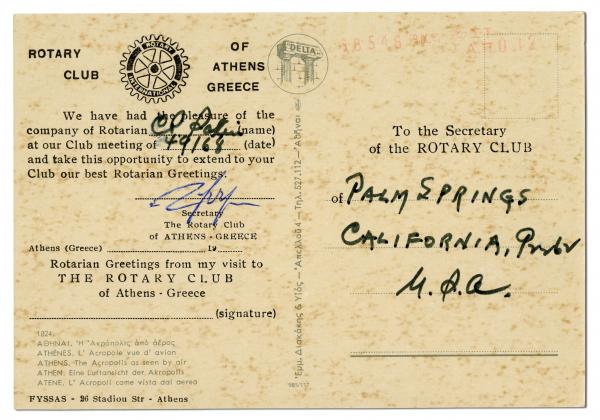 ROTARY CLUB
ROTARY INTERNATIONAL
OF ATHENS GREECE
We have had the pleasure of the
company of Rotarian (name)
at our Club meeting of (date)
and take this opportunity to extend to your
Club our best Rotarian Greetings.
Secretary
The Rotary Club
of ATHENS - GREECE
Athens (Greece) 19
Rotarian Greetings from my visit to
THE ROTARY CLUB
of Athens - Greece
(signature)
1024.
ΑΘΗΝΑΙ. Ἡ Ἀκρόπολις ἀπό ἀέρος
ATHÈNES. L' Acropole vue d' avion
ATHENS. The Acropolis as seen by air
ATHEN. Eine Luftansicht der Akropolis
ATENE. L' Acropoli come vista dal aereo
FYSSAS - 26 Stadiou Str - Athens
DELTA
Ἐμμ. Διακάκης & Υἱός - Ἀπελλοῦ 4 - Τηλ. 527.112 - Ἀθῆναι
985/117
To the Secretary
of the ROTARY CLUB
of PALM SPRINGS
CALIFORNIA,
U.S.A.